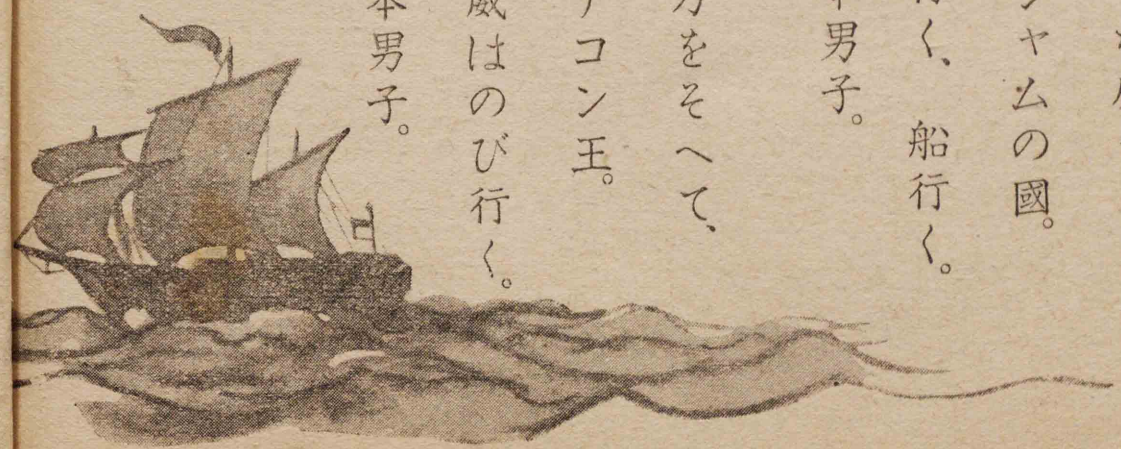 シャムの國。
行く、船行く。
本男子。
力をそへて、
コン王。
威はのび行く。
本男子。